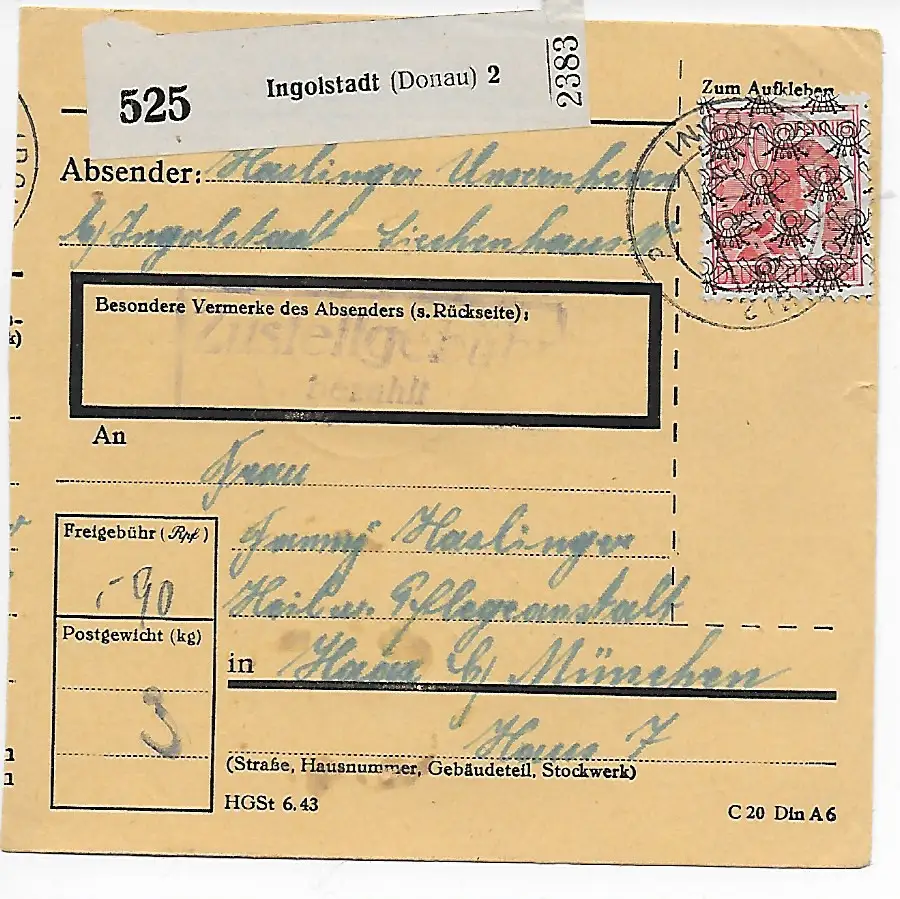 525 Ingolstadt (Donau) 2 2383
Zum Aufkleben
Absender: Haslinger Unsernherrn
b/ Ingolstadt Siechenhaus
Besondere Vermerke des Absenders (s. Rückseite):
Zustellgebühr
bezahlt
An
Frau
Fanny Haslinger
Heil u. Pflegeanstalt
in Haar b/ München
Haus 7
(Straße, Hausnummer, Gebäudeteil, Stockwerk)
Freigebühr (Rpf)
-90
Postgewicht (kg)
3
HGSt 6.43
C 20 Din A 6